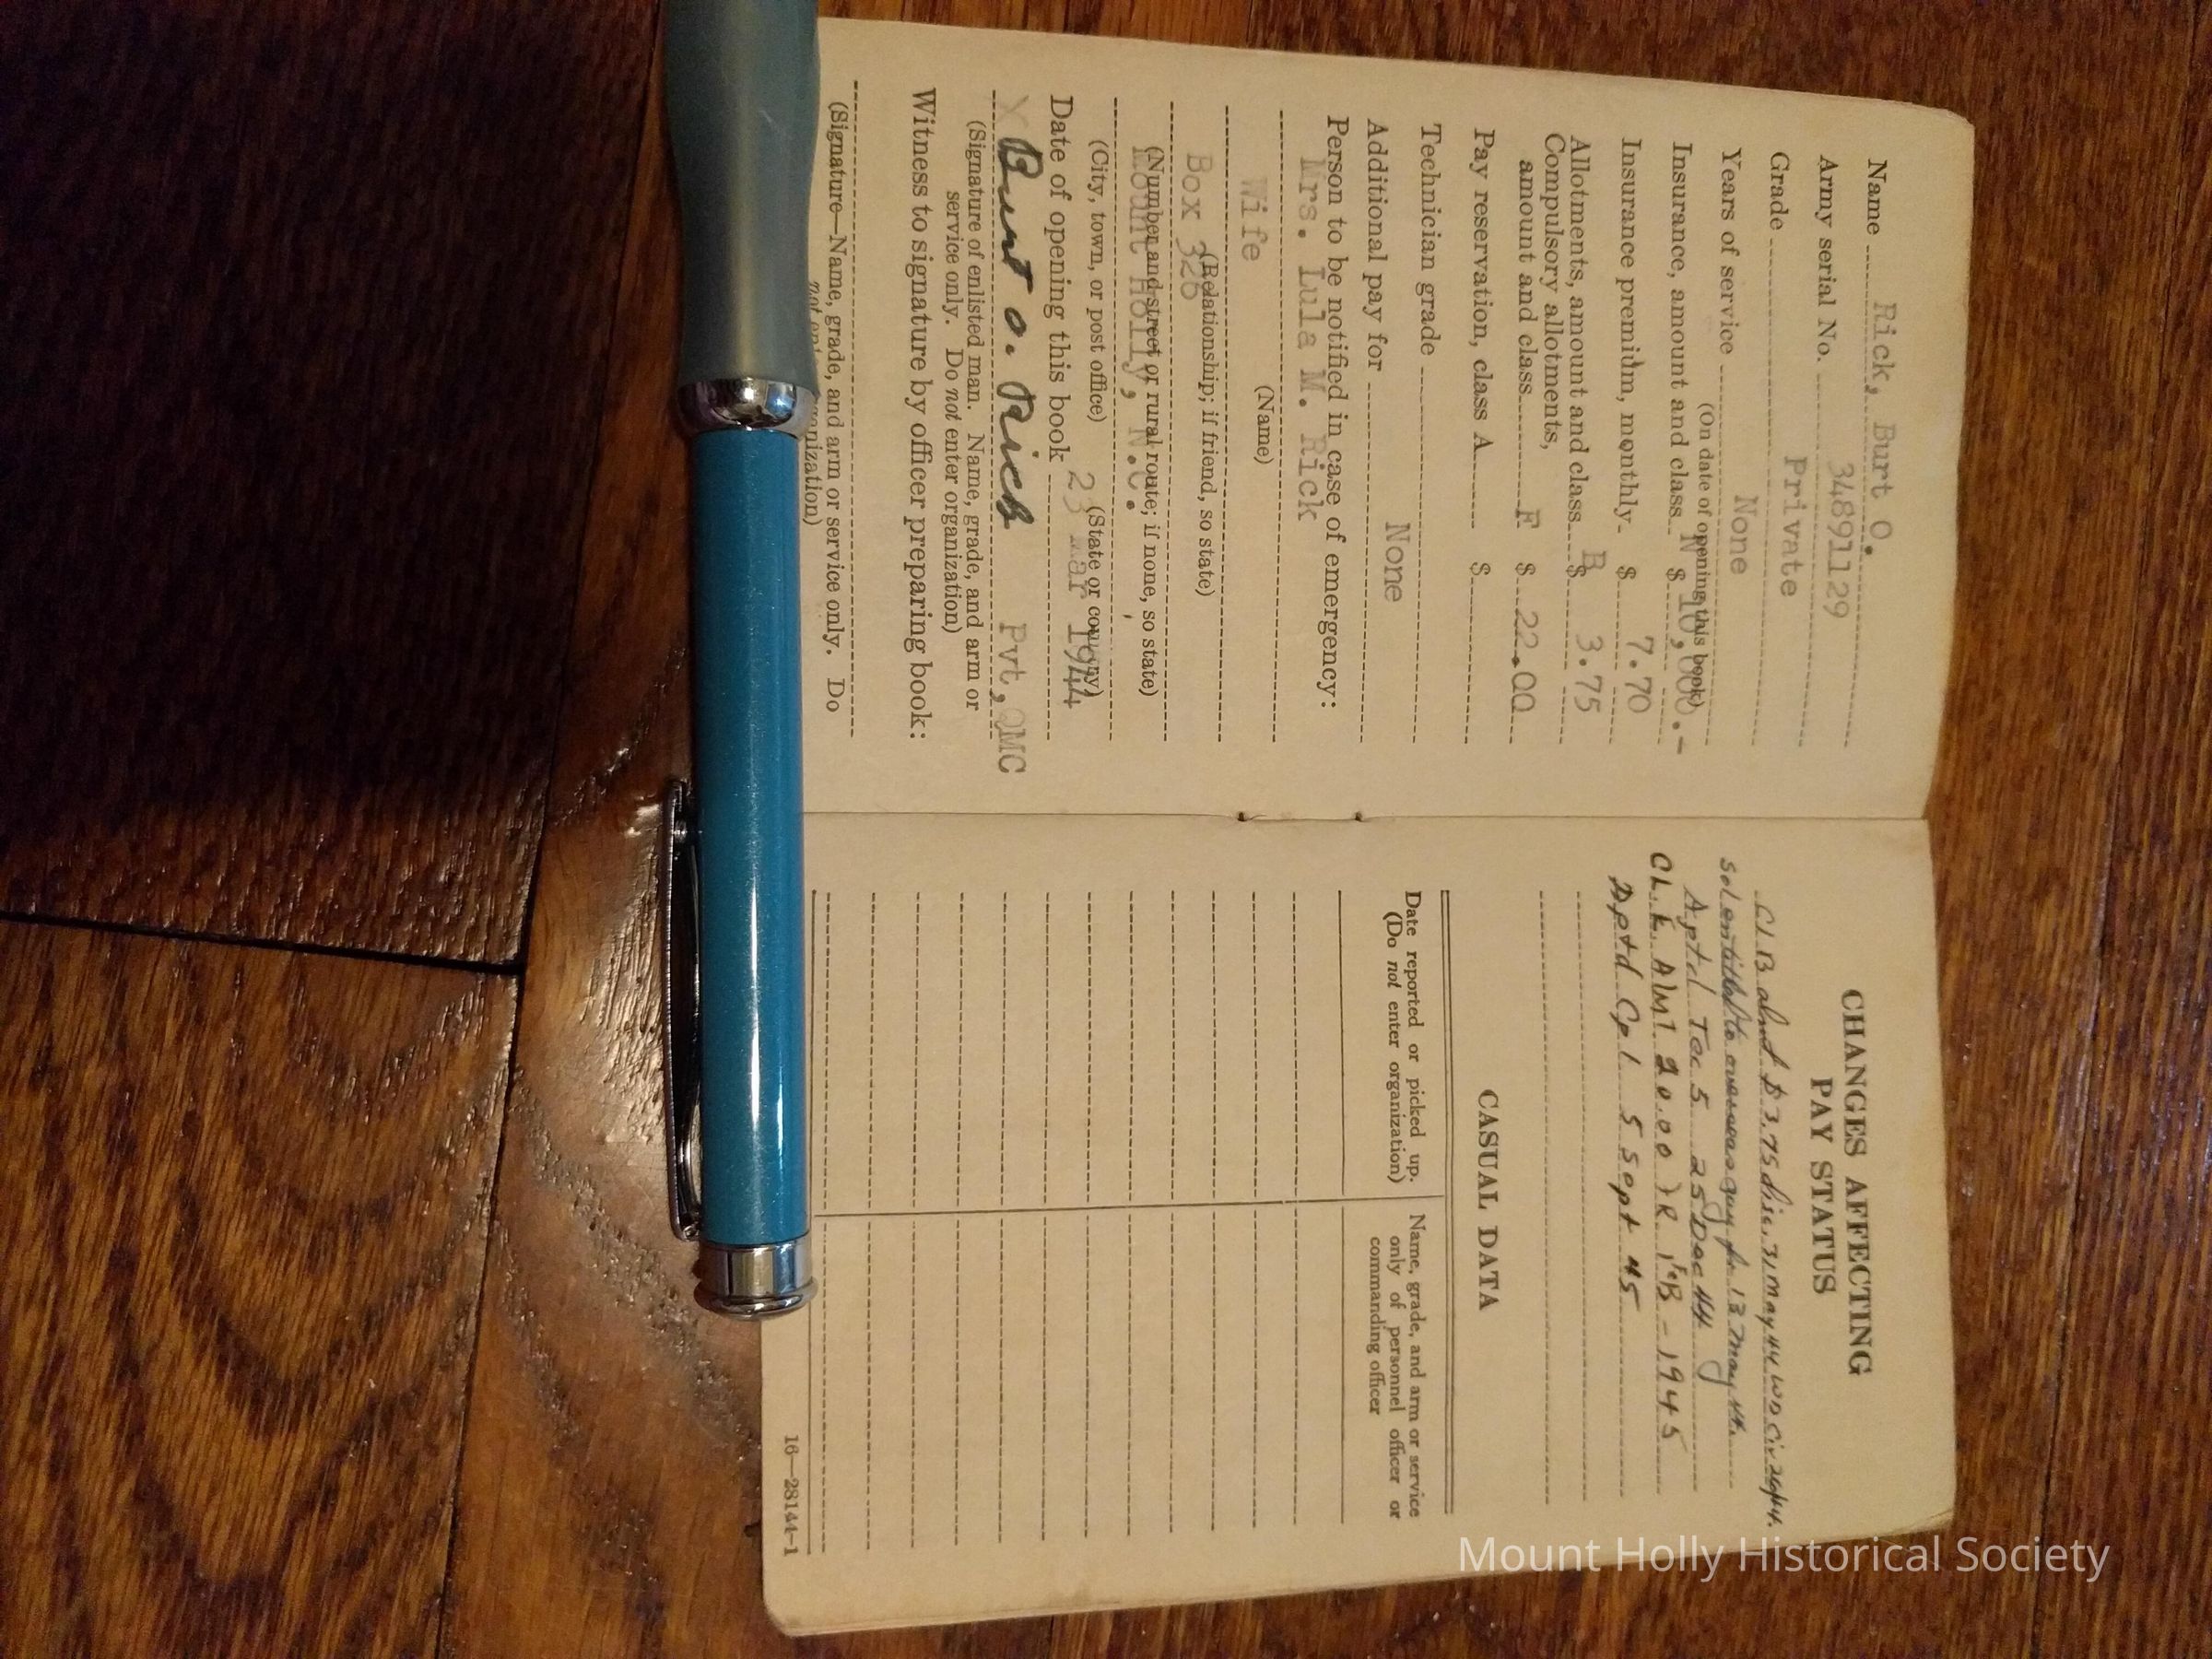 Name Rick, Burt O.
Army serial No. 34891129
Grade Private
Years of service None
(On date of opening this book)
Insurance, amount and class N $ 10,000.-
Insurance premium, monthly $ 7.70
Allotments, amount and class B $ 3.75
Compulsory allotments,
amount and class F $ 22.00
Pay reservation, class A $
Technician grade
Additional pay for None
Person to be notified in case of emergency:
Mrs. Lula M. Rick
(Name)
Wife
(Relationship; if friend, so state)
Box 326
(Number and street or rural route; if none, so state)
Mount Holly, N.C.
(City, town, or post office) (State or country)
Date of opening this book 23 Mar 1944
X Burt O. Rick Pvt, QMC
(Signature of enlisted man. Name, grade, and arm or
service only. Do not enter organization)
Witness to signature by officer preparing book:
(Signature—Name, grade, and arm or service only. Do
not organization)
CHANGES AFFECTING
PAY STATUS
Cl B $3.75 disc. 31 May 44
Sol entitled to overseas pay fr 13 May 44.
Aptd Tec 5 25 Dec 44
CL. E. ALMT. 20.00 FEB - 1945
Aptd Cpl 5 Sept 45
CASUAL DATA
Date reported or picked up.
(Do not enter organization)
Name, grade, and arm or service
only of personnel officer or
commanding officer
16—28144-1
Mount Holly Historical Society